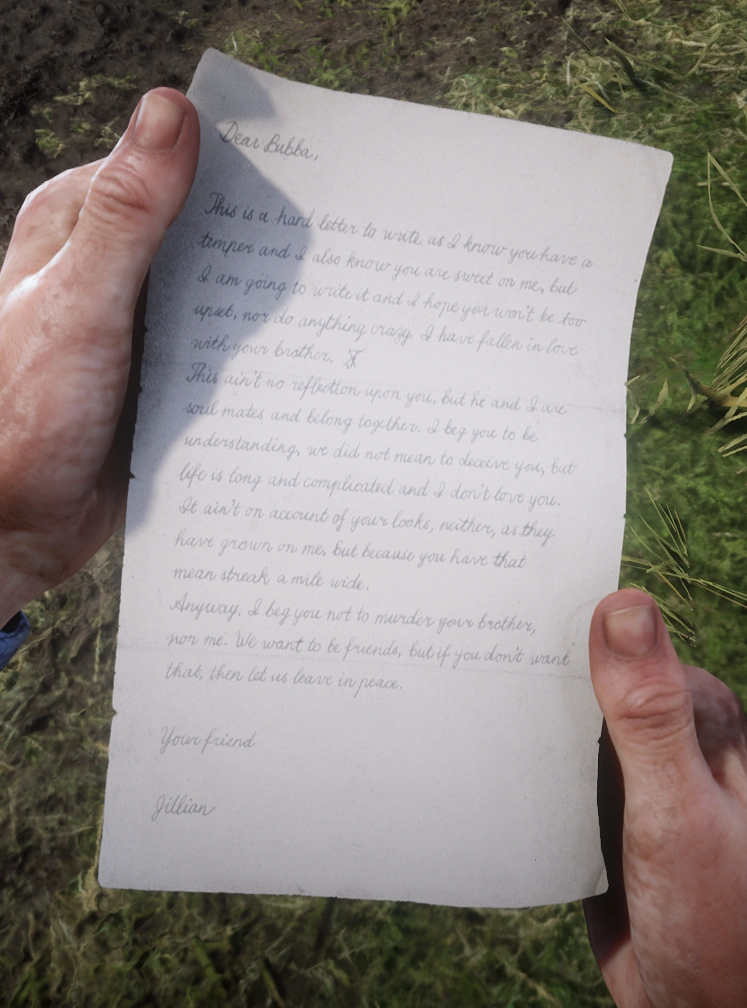 Dear Bubba,
This is a hard letter to write, as I know you have a
temper and I also know you are sweet on me, but
I am going to write it and I hope you won't be too
upset, nor do anything crazy. I have fallen in love
with your brother.
This ain't no reflection upon you, but he and I are
soul mates and belong together. I beg you to be
understanding, we did not mean to deceive you, but
life is long and complicated and I don't love you.
It ain't on account of your looks, neither, as they
have grown on me, but because you have that
mean streak a mile wide.
Anyway, I beg you not to murder your brother,
nor me. We want to be friends, but if you don't want
that, then let us leave in peace.
Your friend
Jillian